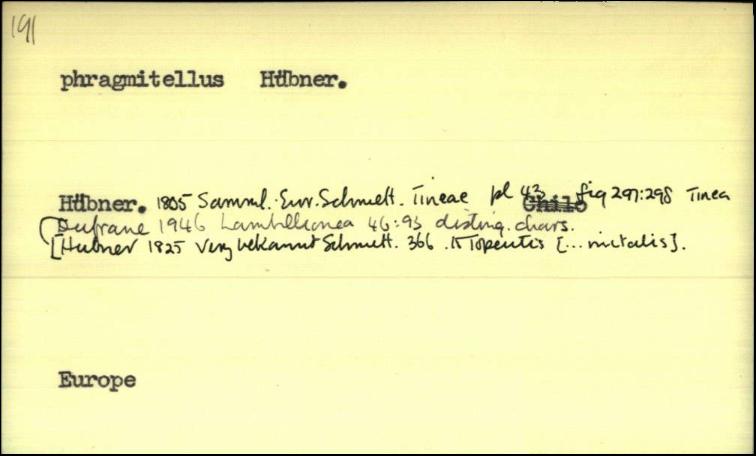 191
phragmitellus Hübner.
Hübner. 1805 Samml. Eur. Schmett. Tineae pl 43 Chilo fig 297:298 Tinea
(Dufrane 1946 Lambillionea 46:93 disting. chars.
[Hubner 1825 Verz bekannt Schmett. 366 . Topeutis [...mitalis].
Europe